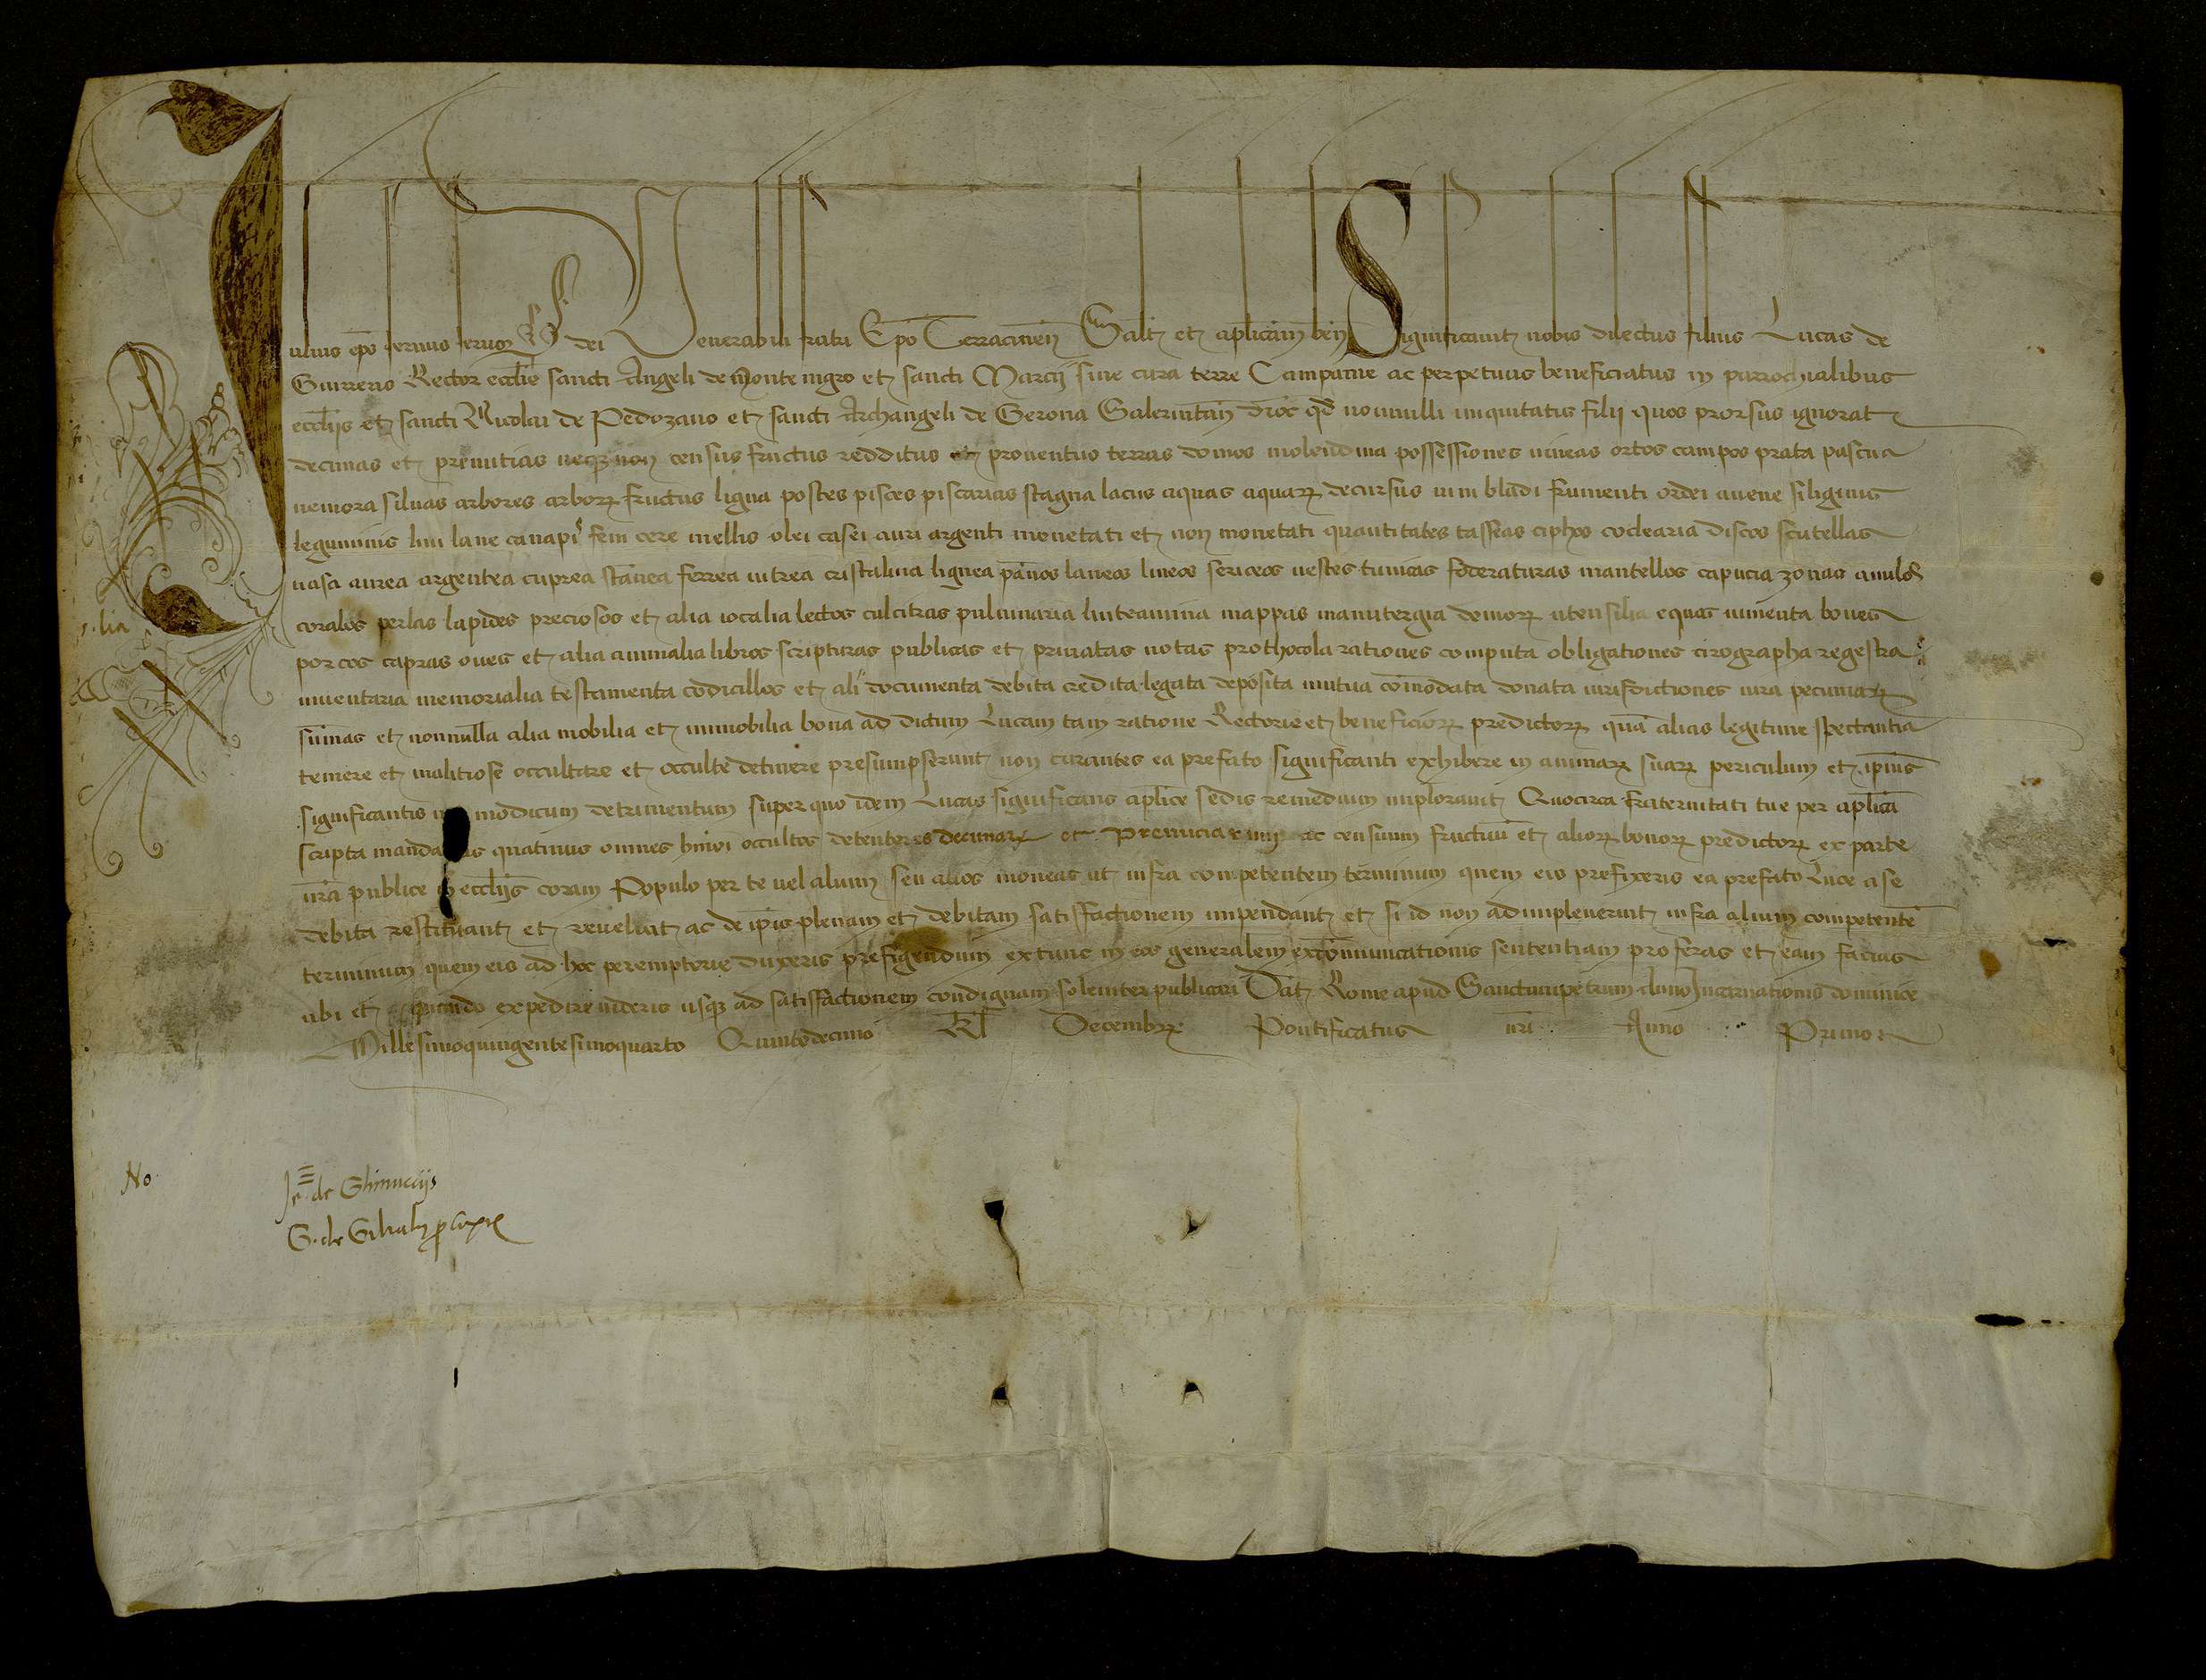 Iulius ep̄s seruus seruoꝝ dei Venerabili fratri Ep̄o Terracinen̄ Salt̄ et aplicam̄ ben̄ Significauit nobis dilectus filius Lucas de
Guirreris Rector eccl̄ie sancti Angeli de Monte nigro et sancti Marcij sine cura terre Campanie ac perpetuus beneficiatus in parrochialibus
eccl̄ijs et sancti Nicolai de Pedozano et sancti Archangeli de Gerona Salernitan̄ dioc̄ qd̄ nonnulli iniquitatis filij quos prorsus ignorat
decimas et primitias necnon census fructus redditus et prouentus terras domos molendina possessiones uineas ortos campos prata pascua
nemora siluas arbores arboꝝ fructus ligna postes pisces piscarias stagna lacus aquas aquaꝝ decursus uini bladi frumenti ordei auene siliginis
leguminis lini lane canapi feni cere mellis olei casei auri argenti monetati et non monetati quantitates tasseas ciphos coclearia discos scutellas
uasa aurea argentea cuprea stānea ferrea uitrea cristalina lignea pānos laneos lineos sericeos uestes tunicas foderaturas mantellos capucia zonas anulos
coralos perlas lapides preciosos et alia iocalia lectos culcitras puluinaria linteamina mappas manutergia domoꝝ utensilia equas iumenta boues
porcos capras oues et alia animalia libros scripturas publicas et priuatas notas prothocola rationes computa obligationes cirographa regestra
inuentaria memorialia testamenta codicillos et alia documenta debita credita legata deposita mutua cōmodata donata iurisdictiones iura pecuniaꝝ
sūmas et nonnulla alia mobilia et immobilia bona ad dictum Lucam tam ratione Rectorie et beneficioꝝ predictoꝝ quā alias legitime spectantia
temere et malitiose occultare et occulte detinere presumpserunt non curantes ea prefato significanti exhibere in animaꝝ suaꝝ periculum et ipīus
significantis modicum detrimentum super quo idem Lucas significans aplice sedis remedium implorauit Quocirca fraternitati tue per aplicā
scripta mandamus quatinus omnes hmōi occultos detentores decimaꝝ et premiciarum ac censuum fructuū et alioꝝ bonoꝝ predictoꝝ ex parte
nr̄a publice in eccl̄ijs coram Populo per te uel alium seu alios moneas ut infra competentem terminum quem eis prefixeris ea prefato Luce a se
debita restituant et reuelent ac de ip̄is plenam et debitam satisfactionem impendant et si id non adimpleuerint infra alium competentē
terminum quem eis ad hoc peremptorie duxeris prefigendum extunc in eos generalem excōmunicationis sententiam proferas et eam facias
ubi et quando expedire uideris usqꝫ ad satisfactionem condignam solemniter publicari Dat̄ Rome apud Sanctumpetrum Anno Incarnationis dominice
Millesimoquingentesimoquarto Quintodecimo Kl̄ Decembrꝝ Pontificatus nr̄i Anno Primo
No
Je de Ghinuccijs
G. de